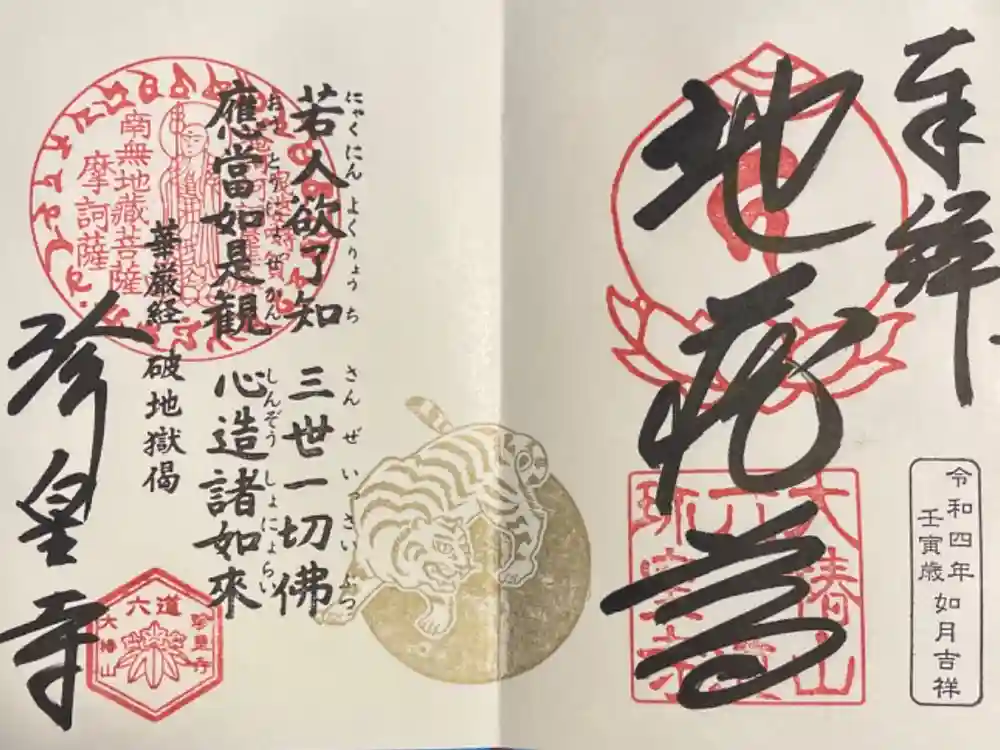 奉拝
地蔵尊
大椿山
六道
珎皇寺
令和四年 如月吉祥
壬寅歳
にゃくにん よくりょうち さんぜいっさいぶつ
若人欲了知 三世一切佛
おうとうにょぜかん しんぞうしょにょらい
應當如是観 心造諸如來
華厳経 破地獄偈
南無地藏菩薩
摩訶薩
珍皇寺
六道
珍皇寺
大椿山